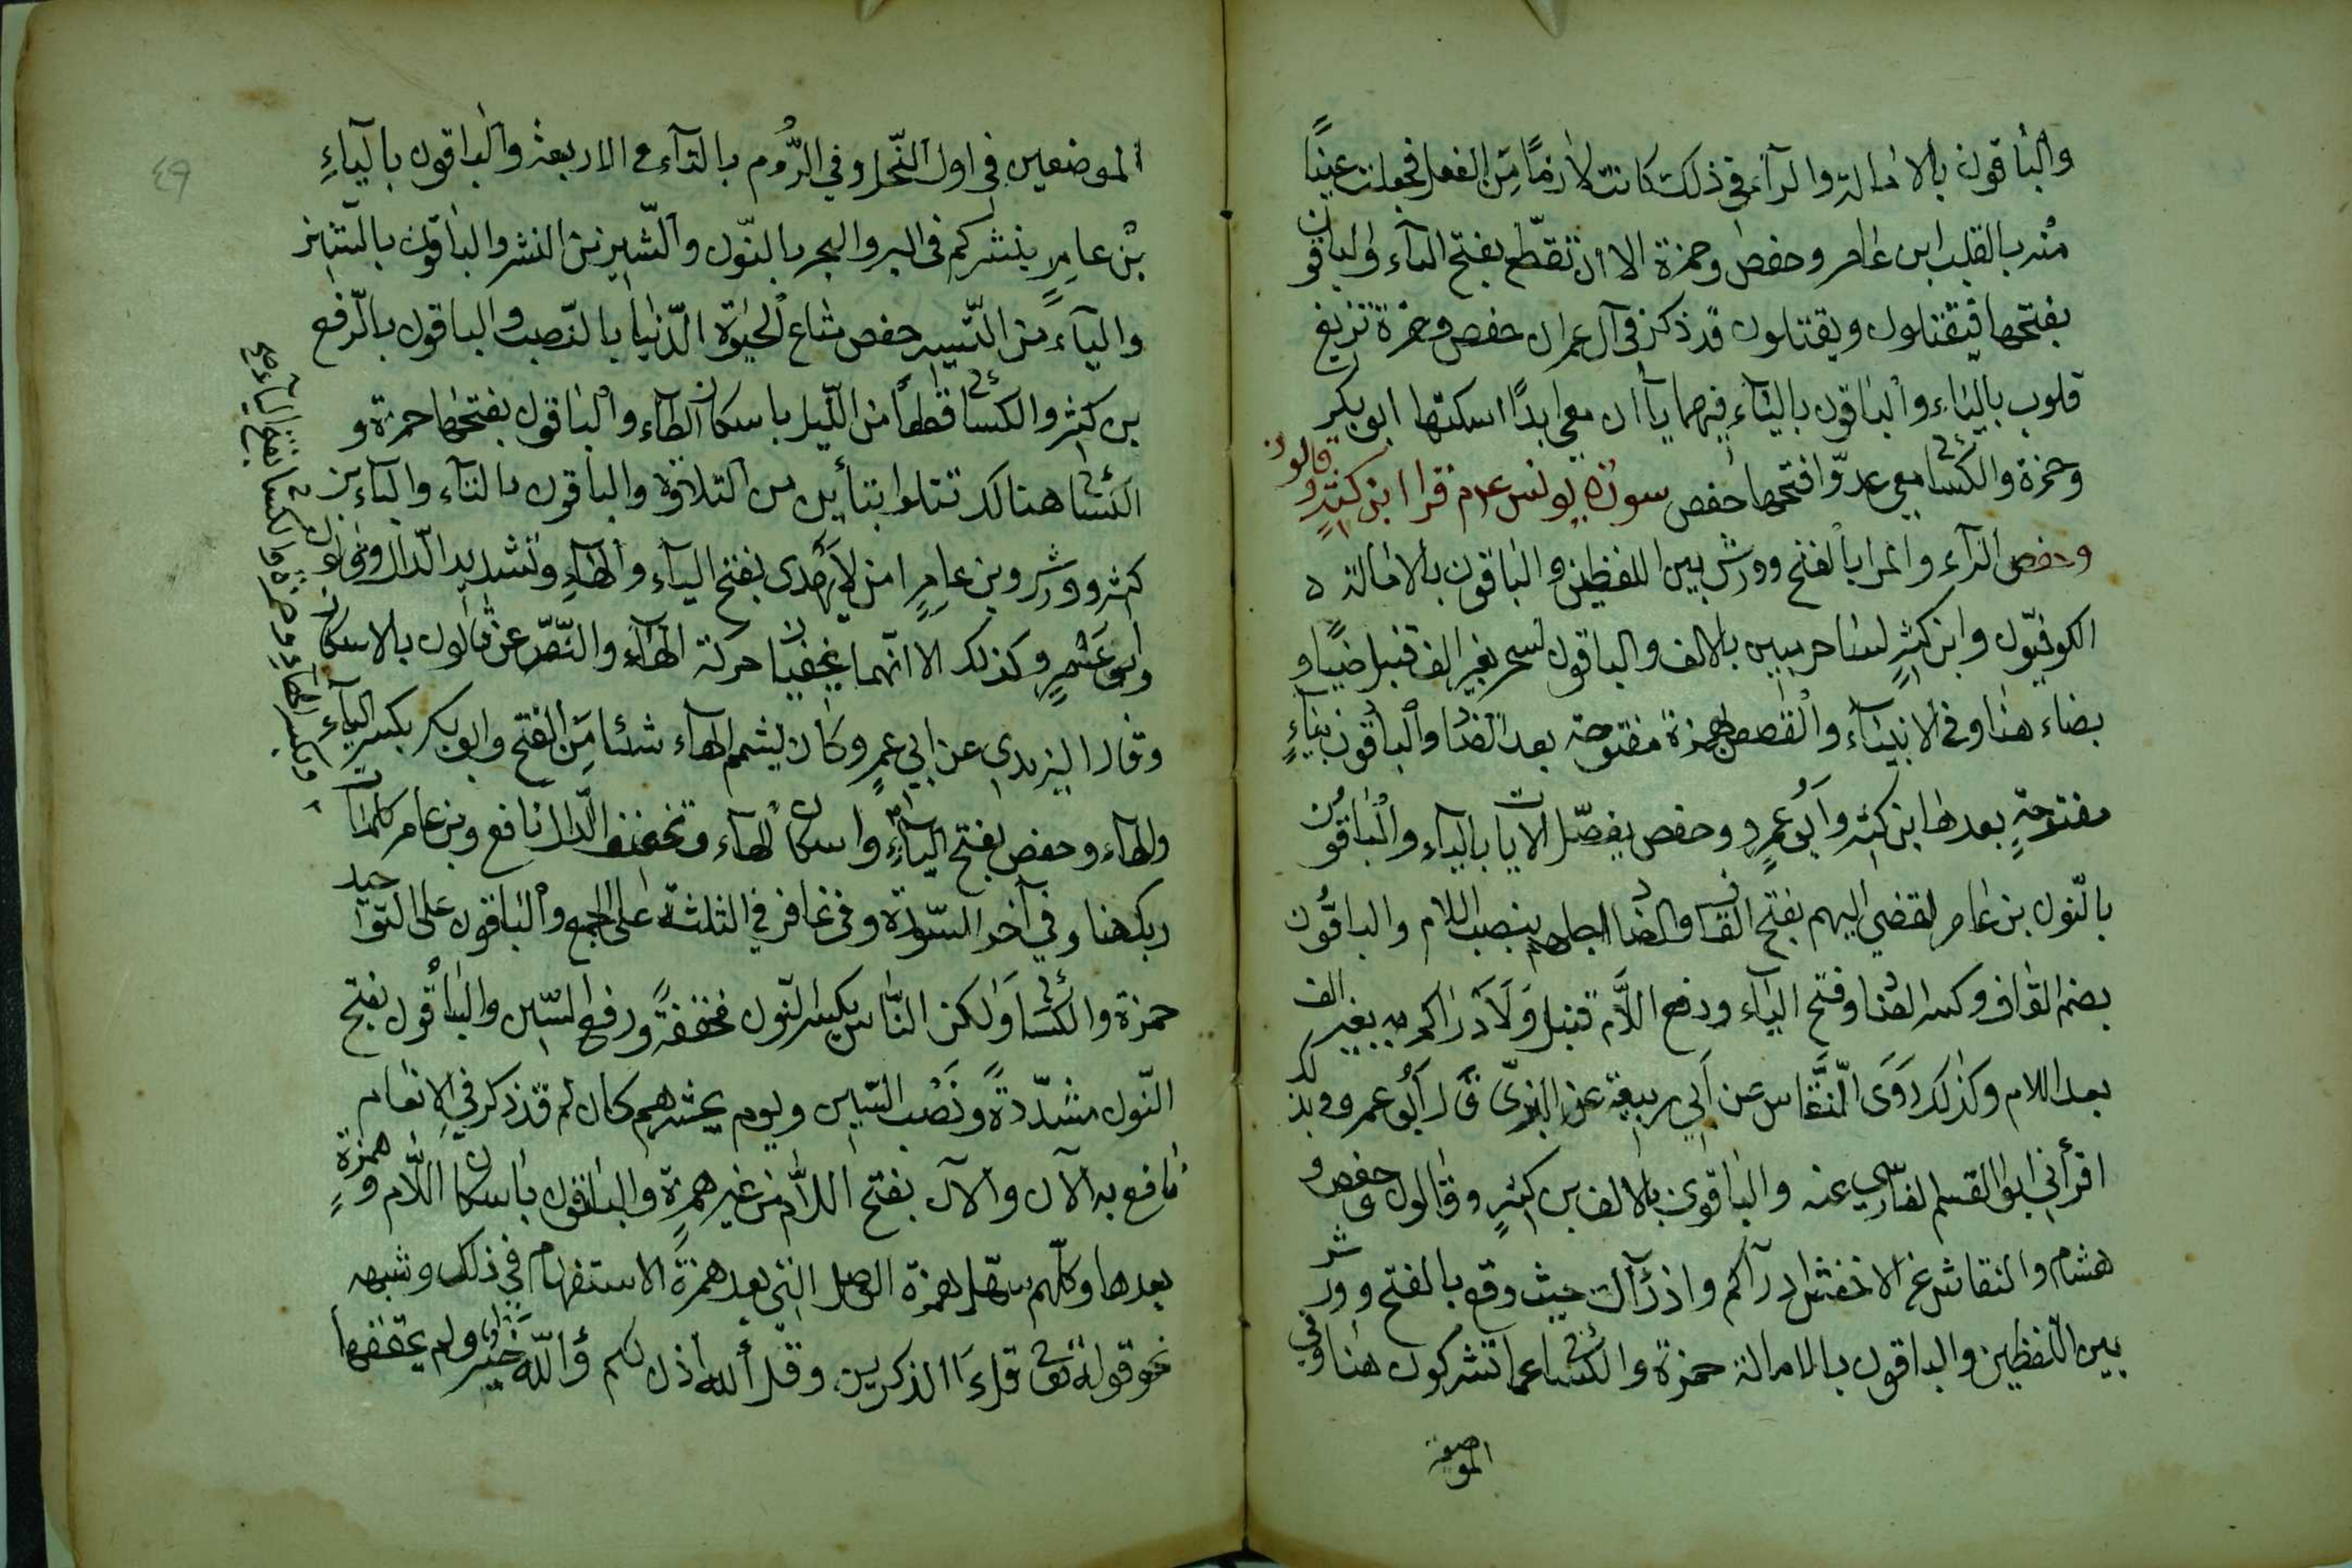 والباقون بالامالة والراء في ذلك كانت لاما من الفعل فجعلت عينا
منه بالقلب ابن عامر وحفص وحمزة الا ان تقطع بفتح التاء والباقون
بفتحها فيقتلون ويقتلون قد ذكر في آل عمران حفص وحمزة تزيغ
قلوب بالياء والباقون بالتاء فيهما ياآن معي ابدا اسكنها ابو بكر
وحمزة والكسائي معي عدوا فتحها حفص سورة يونس عم قرا ابن كثير وقالون
وحفص الراء والمرا بالفتح وورش بين اللفظين والباقون بالامالة ه
الكوفيون وابن كثير لسحر مبين بالالف والباقون لسحر بغير الف قنبل ضياء و
بضاء هنا وفي الانبياء والقصص بهمزة مفتوحة بعد الضاد والباقون بياء
مفتوحة بعدها ابن كثير وابو عمرو وحفص يفصل الايات بالياء والباقون
بالنون بن عامر لقضي اليهم بفتح القاف والضاد اجلهم بنصب اللام والباقون
بضم القاف وكسر الضاد وفتح الياء ورفع اللام قنبل ولادراكم به بغير الف
بعد اللام وكذلك روى النقاس عن ابي ربيعة عن البزي قال ابو عمرو وبذلك
اقرأني ابو القسم الفارسي عنه والباقون بالالف بن كثير وقالون وحفص و
هشام والنقاش عن الاخفش ادراكم وادراك حيث وقع بالفتح وورش
بين اللفظين والباقون بالامالة حمزة والكسائي عما تشركون هنا وفي
الموضعين
الموضعين في اول النحل وفي الروم بالتاء في الاربعة والباقون بالياء
بن عامر ينشركم في البر والبحر بالنون والشين من النشر والباقون بالسين
والياء من التسير حفص متاع الحيوة الدنيا بالنصب والباقون بالرفع
بن كثير والكسائي قطعا من الليل باسكان الطاء والباقون بفتحها حمزة و
الكسائي هنالك تتلوا بتأين من التلاوة والباقون بالتاء والباء بن
كثير وورش وبن عامر امن لا يهدى بفتح الياء والهاء وتشديد الدال وقالون
وابو عمرو كذلك الا انهما يخفيان حركة الهاء والنص عن قالون بالاسكان
وقال اليزيدي عن ابي عمرو كان يشم الهاء شيئا من الفتح وابو بكر بكسر الياء
والهاء وحفص بفتح الياء واسكان الهاء وتخفيف الدال نافع وبن عامر كلمات
ربك هنا وفي آخر السورة وفي غافر في الثلثة على الجمع والباقون على التوحيد
حمزة والكسائي ولكن الناس بكسر النون مخففة ورفع السين والباقون بفتح
النون مشددة ونصب السين ويوم يحشرهم كان لم قد ذكر في الانعام
نافع به الآن والآن بفتح اللام من غير همزة والباقون باسكان اللام وهمزة
بعدها وكلهم سهل همزة الوصل التي بعد همزة الاستفهام في ذلك وشبهه
نحو قوله تعالى قل ءآالذكرين وقل أالله اذن لكم وأالله خير ولم يحققها
وبكسر الهاء وحمزة والكسائي بفتح الياء
٤٩